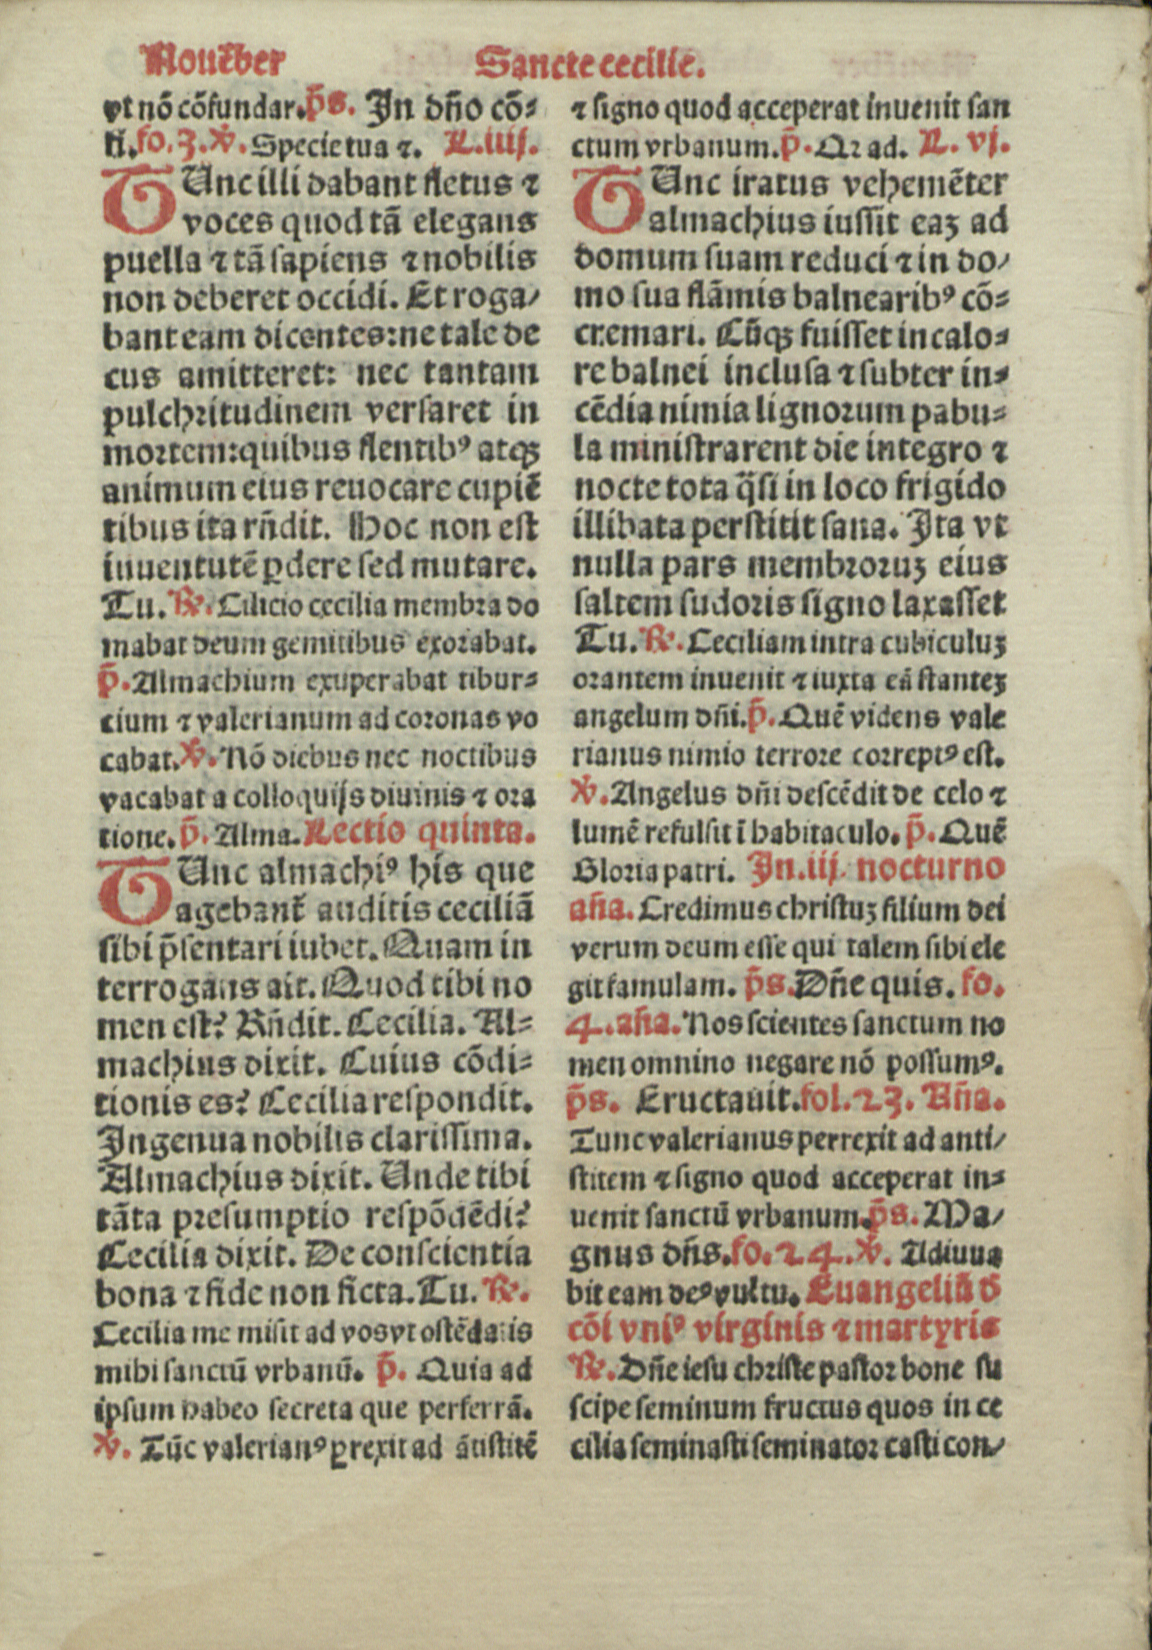 Nouẽber Sancte cecilie.
vt nõ cõfundar. p̃s. In dño cõ⸗
fi. fo. 3. ℣. Specie tua ⁊. L. iiij.
TUnc illi dabant fletus ⁊
voces quod tã elegans
puella ⁊ tã sapiens ⁊ nobilis
non deberet occidi. Et roga/
bant eam dicentes: ne tale de
cus amitteret: nec tantam
pulchritudinem versaret in
mortem: quibus flentibꝰ atqꝫ
animum eius reuocare cupiẽ
tibus ita rñdit. Hoc non est
iuuentutẽ ꝑdere sed mutare.
Tu. ℟. Cilicio cecilia membra do
mabat deum gemitibus exorabat.
p̃. Almachium exuperabat tibur⸗
cium ⁊ valerianum ad coronas vo
cabat. ℣. Nõ diebus nec noctibus
vacabat a colloquijs diuinis ⁊ ora
tione. p̃. Alma. Lectio quinta.
TUnc almachiꝰ his que
agebant᷑ auditis ceciliã
sibi p̃sentari iubet. Quam in
terrogans ait. Quod tibi no
men est? Rñdit. Cecilia. Al⸗
machius dixit. Cuius cõdi⸗
tionis es? Cecilia respondit.
Ingenua nobilis clarissima.
Almachius dixit. Unde tibi
tãta presumptio respõdẽdi?
Cecilia dixit. De conscientia
bona ⁊ fide non ficta. Tu. ℟.
Cecilia me misit ad vos vt ostẽdatis
mihi sanctũ vrbanũ. p̃. Quia ad
ipsum habeo secreta que perferrã.
℣. Tũc valerianꝰ ꝑrexit ad ãtistitẽ
⁊ signo quod acceperat inuenit san
ctum vrbanum. p̃. Qꝛ ad. L. vj.
TUnc iratus vehemẽter
almachius iussit eaꝫ ad
domum suam reduci ⁊ in do/
mo sua flãmis balnearibꝰ cõ⸗
cremari. Cũqꝫ fuisset in calo⸗
re balnei inclusa ⁊ subter in⸗
cẽdia nimia lignorum pabu⸗
la ministrarent die integro ⁊
nocte tota q̃si in loco frigido
illibata perstitit sana. Ita vt
nulla pars membroruꝫ eius
saltem sudoris signo laxasset
Tu. ℟. Ceciliam intra cubiculuꝫ
orantem inuenit ⁊ iuxta eã stanteꝫ
angelum dñi. p̃. Quẽ videns vale
rianus nimio terrore correptꝰ est.
℣. Angelus dñi descẽdit de celo ⁊
lumẽ refulsit ĩ habitaculo. p̃. Quẽ
Gloria patri. In. iij. nocturno
aña. Credimus christuꝫ filium dei
verum deum esse qui talem sibi ele
git famulam. p̃s. Dñe quis. fo.
4. aña. Nos scientes sanctum no
men omnino negare nõ possumꝰ.
p̃s. Eructauit. fol. 23. Aña.
Tunc valerianus perrexit ad anti/
stitem ⁊ signo quod acceperat in⸗
uenit sanctũ vrbanum. p̃s. Ma/
gnus dñs. fo. 24. ℣. Adiuua
bit eam deꝰ vultu. Euangeliũ d̃
cõi vniꝰ virginis ⁊ martyris
℟. Dñe iesu christe pastor bone su
scipe seminum fructus quos in ce
cilia seminasti seminator casti con/